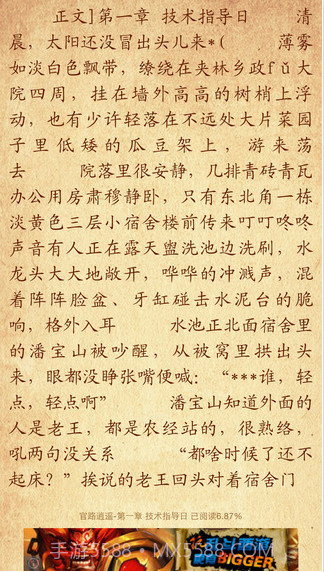 正文]第一章 技术指导日 清
晨，太阳还没冒出头儿来*( 薄雾
如淡白色飘带，缭绕在夹林乡政fǔ大
院四周，挂在墙外高高的树梢上浮
动，也有少许轻落在不远处大片菜园
子里低矮的瓜豆架上，游来荡
去 院落里很安静，几排青砖青瓦
办公用房肃穆静卧，只有东北角一栋
淡黄色三层小宿舍楼前传来叮叮咚咚
声音有人正在露天盥洗池边洗刷，水
龙头大大地敞开，哗哗的冲溅声，混
着阵阵脸盆、牙缸碰去水泥台的脆
响，格外入耳 水池正北面宿舍里
的潘宝山被吵醒，从被窝里拱出头
来，眼都没睁张嘴便喊：“***谁，轻
点，轻点啊” 潘宝山知道外面的
人是老王，都是农经站的，很熟络，
吼两句没关系 “都啥时候了还不
起床？”挨说的老王回头对着宿舍门
官路逍遥-第一章 技术指导日 已阅读6.87%
乱斗英海
BIGGER
手游3588·MX5588·COM